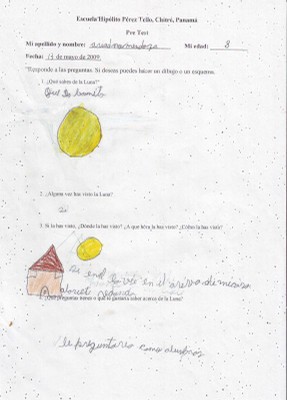 Escuela Hipólito Pérez Tello, Chitré, Panamá
Pre Test
Mi apellido y nombre: Mi edad: 8
Fecha: 14 de mayo de 2009.
"Responde a las preguntas. Si deseas puedes hacer un dibujo o un esquema.
1. ¿Qué sabes de la Luna?"
Que es bonita
2. ¿Alguna vez has visto la Luna?
si
3. Si la has visto, ¿Dónde la has visto? ¿A qué hora la has visto? ¿Cómo la has visto?
si en la vie en el arriva de mi casa
¿Qué preguntas tienes o qué te gustaría saber acerca de la Luna?
le preguntaria como alumbras